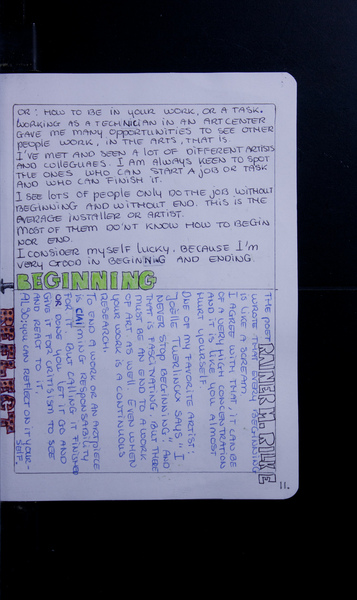 OR: HOW TO BE IN YOUR WORK, OR A TASK.
WORKING AS A TECHNICIAN IN AN ART CENTER
GAVE ME MANY OPPORTUNITIES TO SEE OTHER
PEOPLE WORK, IN THE ARTS, THAT IS
I'VE MET AND SEEN A LOT OF DIFFERENT ARTISTS
AND COLLEGUAES. I AM ALWAYS KEEN TO SPOT
THE ONES WHO CAN START A JOB OR TASK
AND WHO CAN FINISH IT.
I SEE LOTS OF PEOPLE ONLY DO THE JOB WITHOUT
BEGINNING AND WITHOUT END. THIS IS THE
AVERAGE INSTALLER OR ARTIST.
MOST OF THEM DO'NT KNOW HOW TO BEGIN
NOR END.
I CONSIDER MYSELF LUCKY. BECAUSE I'M
VERY GOOD IN BEGINNING AND ENDING.
BEGINNING
THE POET RAINER M. RILKE
WROTE THAT EVERY BEGINNING
IS LIKE A SCREAM.
I AGREE WITH THAT, IT CAN BE
OF A VERY HIGH CONCENTRATION
AND IT IS LIKE YOU ALMOST
HURT YOURSELF.
ONE OF MY FAVORITE ARTIST:
JOËLLE TUERLINCKX SAYS "I
NEVER STOP BEGINNING," AND
THAT IS FASCINATING, BUT THERE
MUST BE AN END TO A WORK
OF ART AS WELL. EVEN WHEN
YOUR WORK IS A CONTINUOUS
RESEARCH.
TO END A WORK OR AN ARTPIECE
IS CLAIMING RESPONSIBILITY
FOR IT. BY CALLING IT FINISHED
OR DONE YOU LET IT GO AND
GIVE IT FOR CRITISISM TO SEE
AND REACT TO IT.
ALSO YOU CAN REFLECT ON IT YOUR-
SELF.
11.